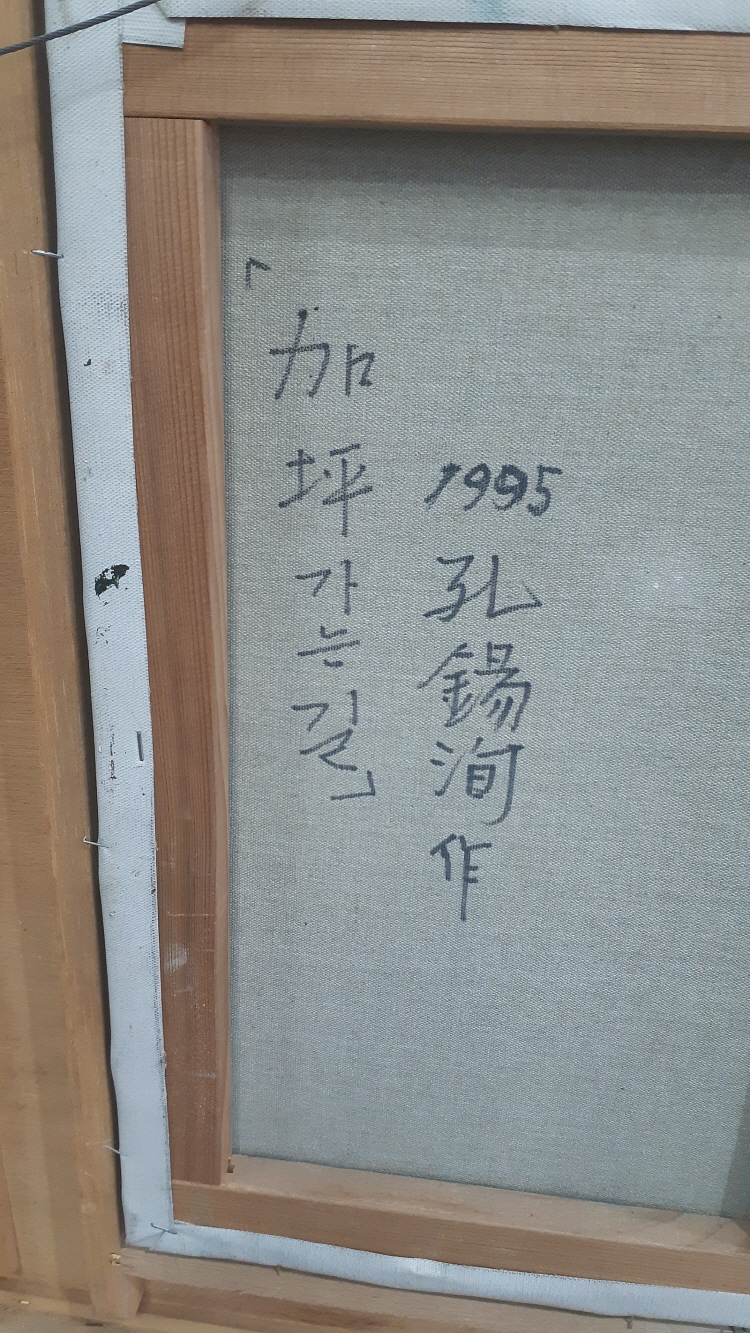 「加坪 가는길」
1995 孔錫洵 作